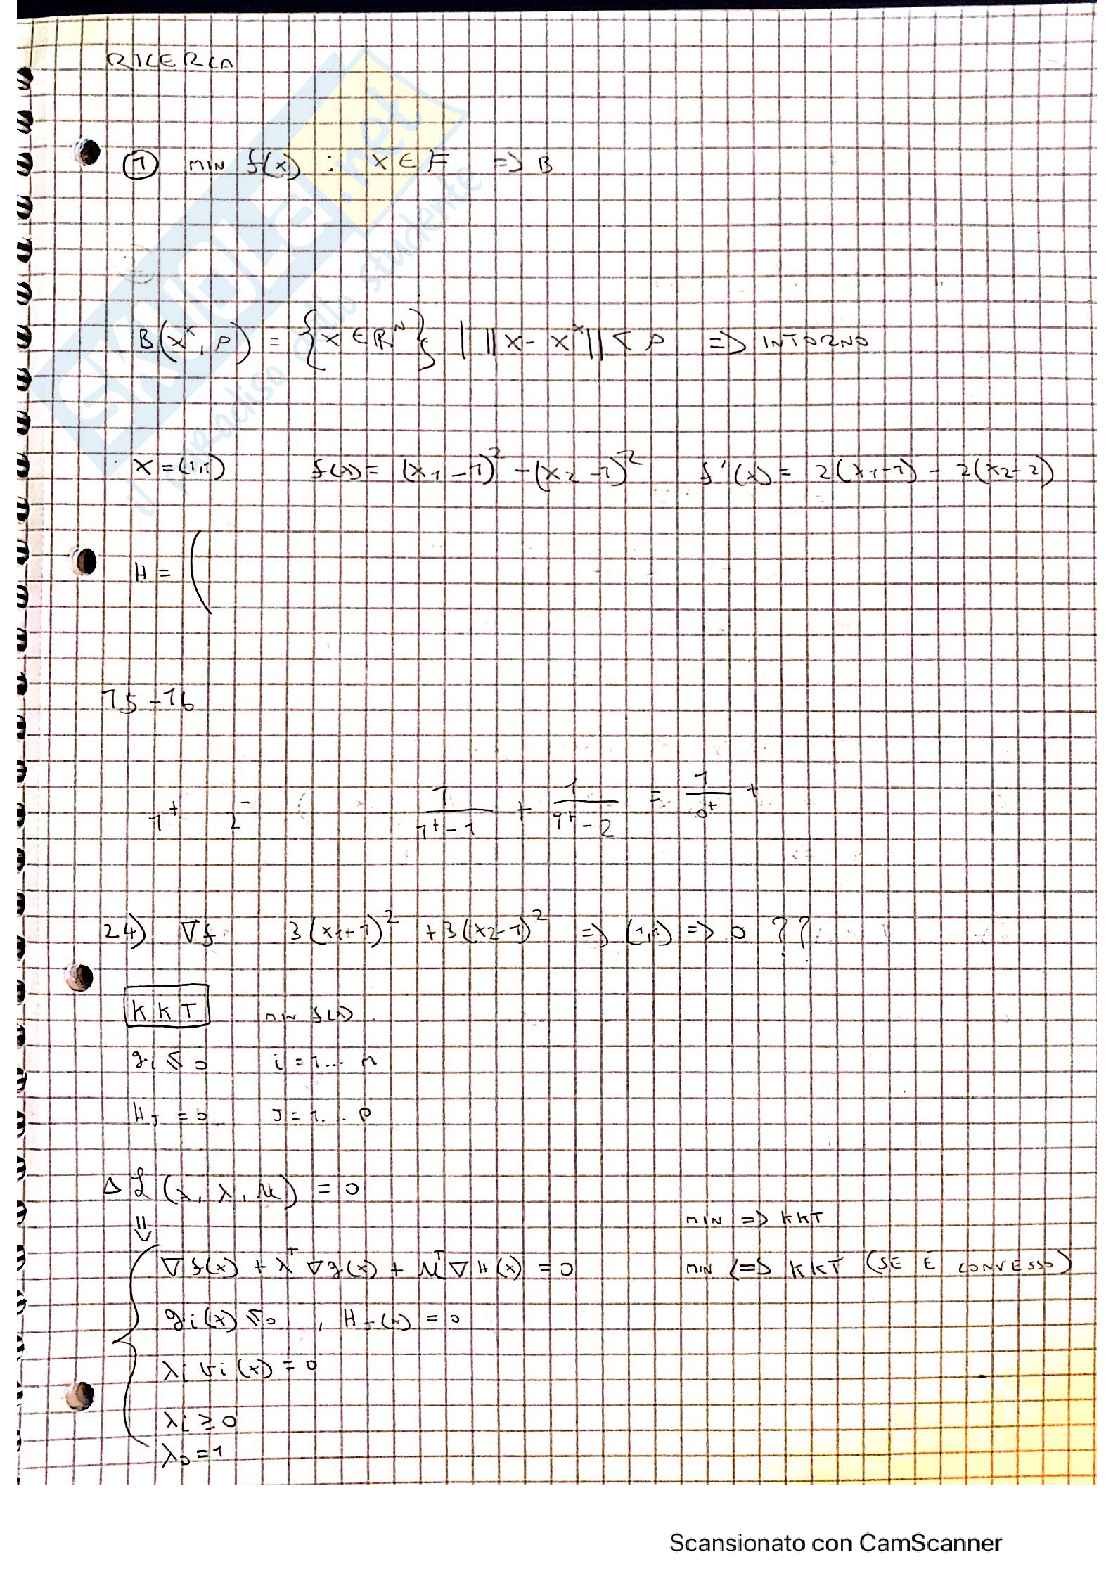 RICERCA
① MIN f(x) : X ∈ F => B
B(x*, ρ) = {X ∈ R^N} | ||X - X*|| < ρ => INTORNO
X = (1,1) f(x) = (x₁ - 1)² - (x₂ - 1)² f'(x) = 2(x₁-1) - 2(x₂-2)
H = (
15 - 16
1⁺ 2⁻ 1/(1⁺-1) + 1/(1⁺-2) = 1/0⁺ +
24) ∇f 3(x₁-1)² + 3(x₂-1)² => (1,1) => 0 ??
KKT MIN f(x)
gi ≤ 0 i = 1...
HJ = 0 J = 1... P
Δ L(x, λ, μ) = 0
⇓
MIN => KKT
∇f(x) + λᵀ∇g(x) + μᵀ∇H(x) = 0 MIN <=> KKT (SE È CONVESSO)
gi(x) ≤ 0 , HJ(x) = 0
λi gi(x) = 0
λi ≥ 0
λ₀ = 1
SKUOLA.net
Scansionato con CamScanner